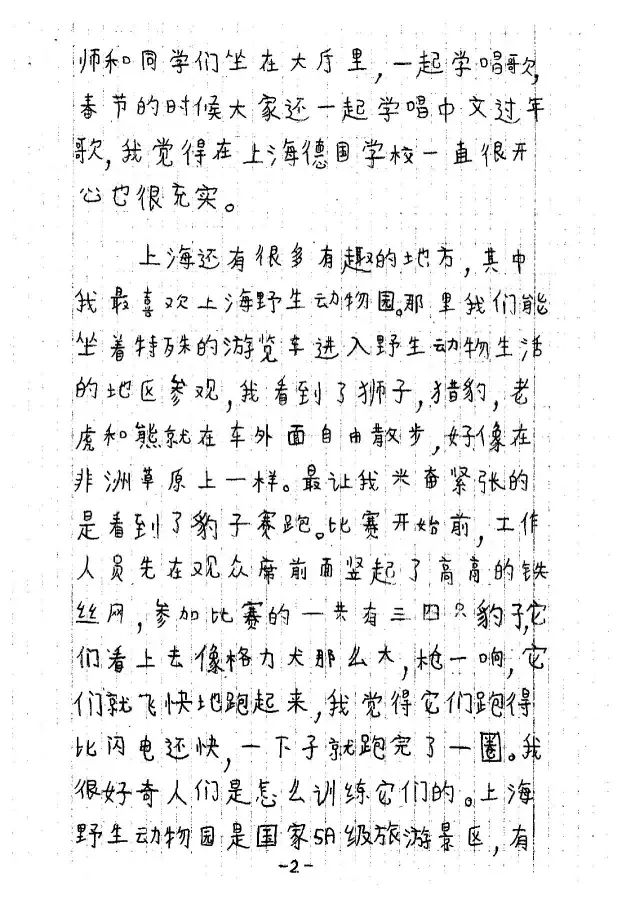 师和同学们坐在大厅里，一起学唱歌，
春节的时候大家还一起学唱中文过年
歌，我觉得在上海德国学校一直很开
心也很充实。
上海还有很多有趣的地方，其中
我最喜欢上海野生动物园。那里我们能
坐着特殊的游览车进入野生动物生活
的地区参观，我看到了狮子，猎豹，老
虎和熊就在车外面自由散步，好像在
非洲草原上一样。最让我兴奋紧张的
是看到了豹子赛跑。比赛开始前，工作
人员先在观众席前面竖起了高高的铁
丝网，参加比赛的一共有三四只豹子，它
们看上去像格力犬那么大，枪一响，它
们就飞快地跑起来，我觉得它们跑得
比闪电还快，一下子就跑完了一圈。我
很好奇人们是怎么训练它们的。上海
野生动物园是国家5A级旅游景区，有
-2-